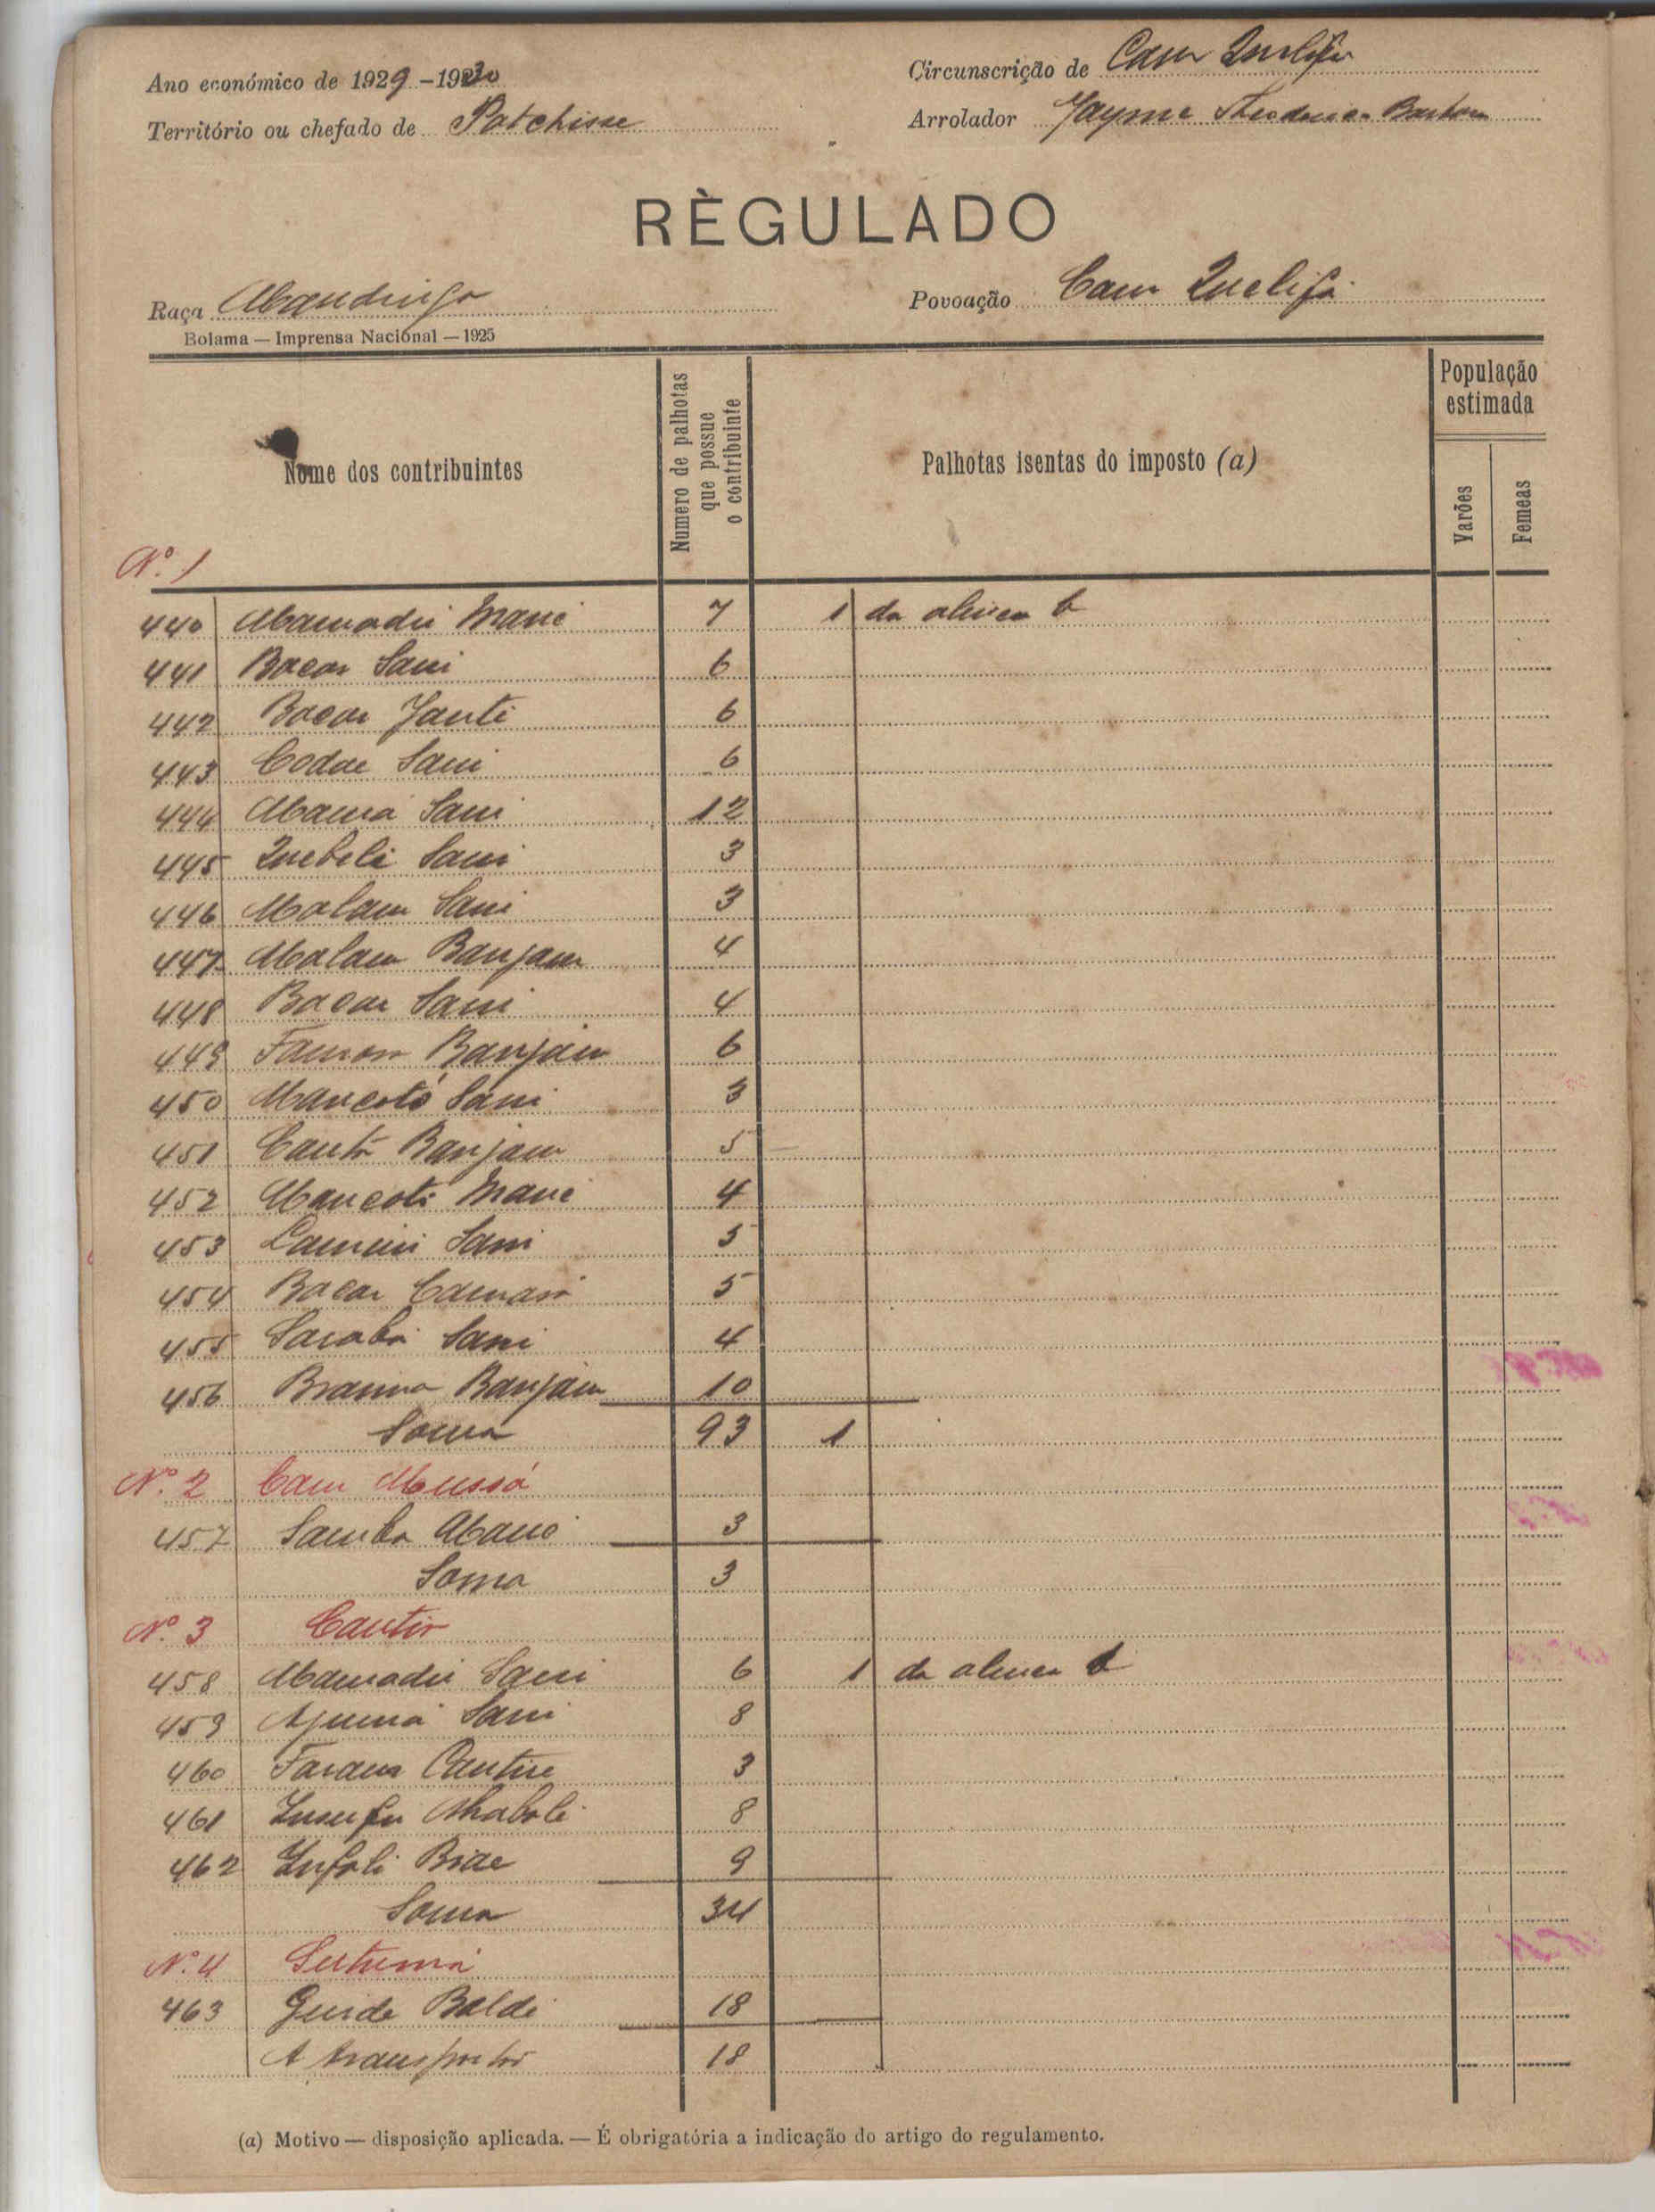 Ano económico de 1929-1930
Circunscrição de Cam Quelifa
Território ou chefado de Patchisse
Arrolador Jayme Theodoro Barbosa
RÈGULADO
Raça Mandinga
Povoação Cam Quelifá
Bolama — Imprensa Nacional — 1925
Nome dos contribuintes
Numero de palhotas que possue o contribuinte
Palhotas isentas do imposto (a)
População estimada
Varões
Femeas
Nº. 1
440 Mamadú Mané 7 1 da alinea b
441 Bacar Sani 6
442 Bacar Janté 6
443 Codae Sani 6
444 Mamá Sani 12
445 Quebeli Sani 3
446 Malam Sani 3
447 Malam Banjam 4
448 Bacar Sani 4
449 Banjam 6
450 Mancotó Sani 3
451 Cantó Banjam 5
452 Mancoti Mané 4
453 Lamini Sani 5
454 Bacar Camará 5
455 Sarabó Sani 4
456 Brama Banjam 10
Soma 93 1
Nº. 2 Cam Mussá
457 Samba Mané 3
Soma 3
Nº. 3 Cantir
458 Mamadú Sani 6 1 da alinea b
459 Ajumá Sani 8
460 Faram Cantire 3
461 8
462 Infali Biae 9
Soma 34
Nº. 4 Sutumá
463 Guide Baldé 18
A transportar 18
(a) Motivo — disposição aplicada. — É obrigatória a indicação do artigo do regulamento.